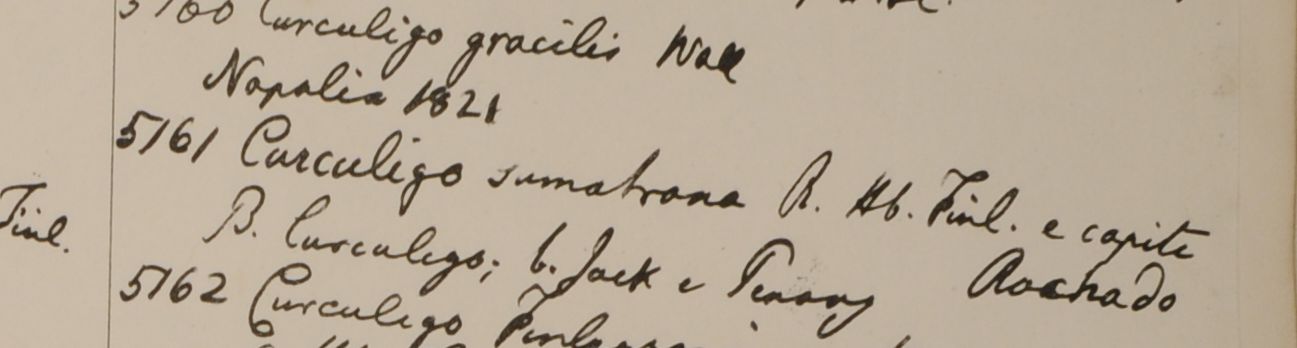 5760 Curculigo gracilis Wall
Napalia 1821
5761 Curculigo sumatrana R. Hb. Finl. e capite
Rochado
Finl.
B. Curculigo; b. Jack e Penang
5762 Curculigo